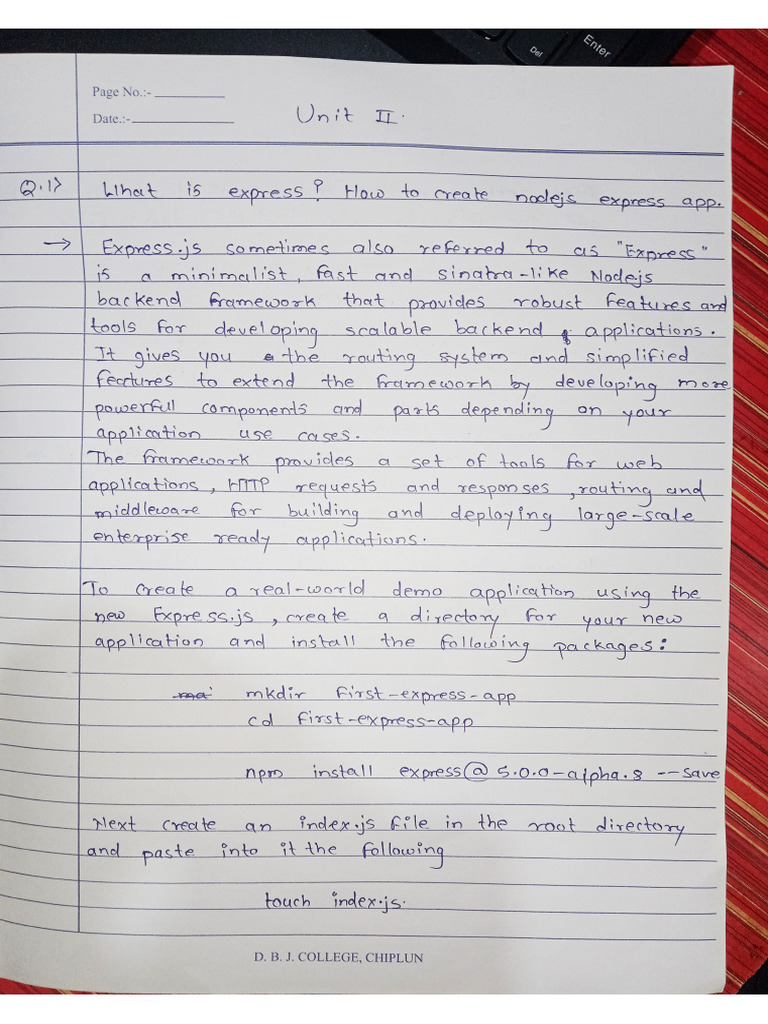 Del
Enter
Page No.:-
Date.:-
Unit II.
Q.1> What is express? How to create nodejs express app.
→ Express.js sometimes also referred to as "Express"
is a minimalist, fast and sinatra-like Nodejs
backend framework that provides robust features and
tools for developing scalable backend applications.
It gives you the routing system and simplified
features to extend the framework by developing more
powerful components and parts depending on your
application use cases.
The framework provides a set of tools for web
applications, HTTP requests and responses, routing and
middleware for building and deploying large-scale
enterprise ready applications.
To create a real-world demo application using the
new Express.js, create a directory for your new
application and install the following packages:
mkdir first-express-app
cd first-express-app
npm install express@5.0.0-alpha.8 --save
Next create an index.js file in the root directory
and paste into it the following
touch index.js.
D. B. J. COLLEGE, CHIPLUN